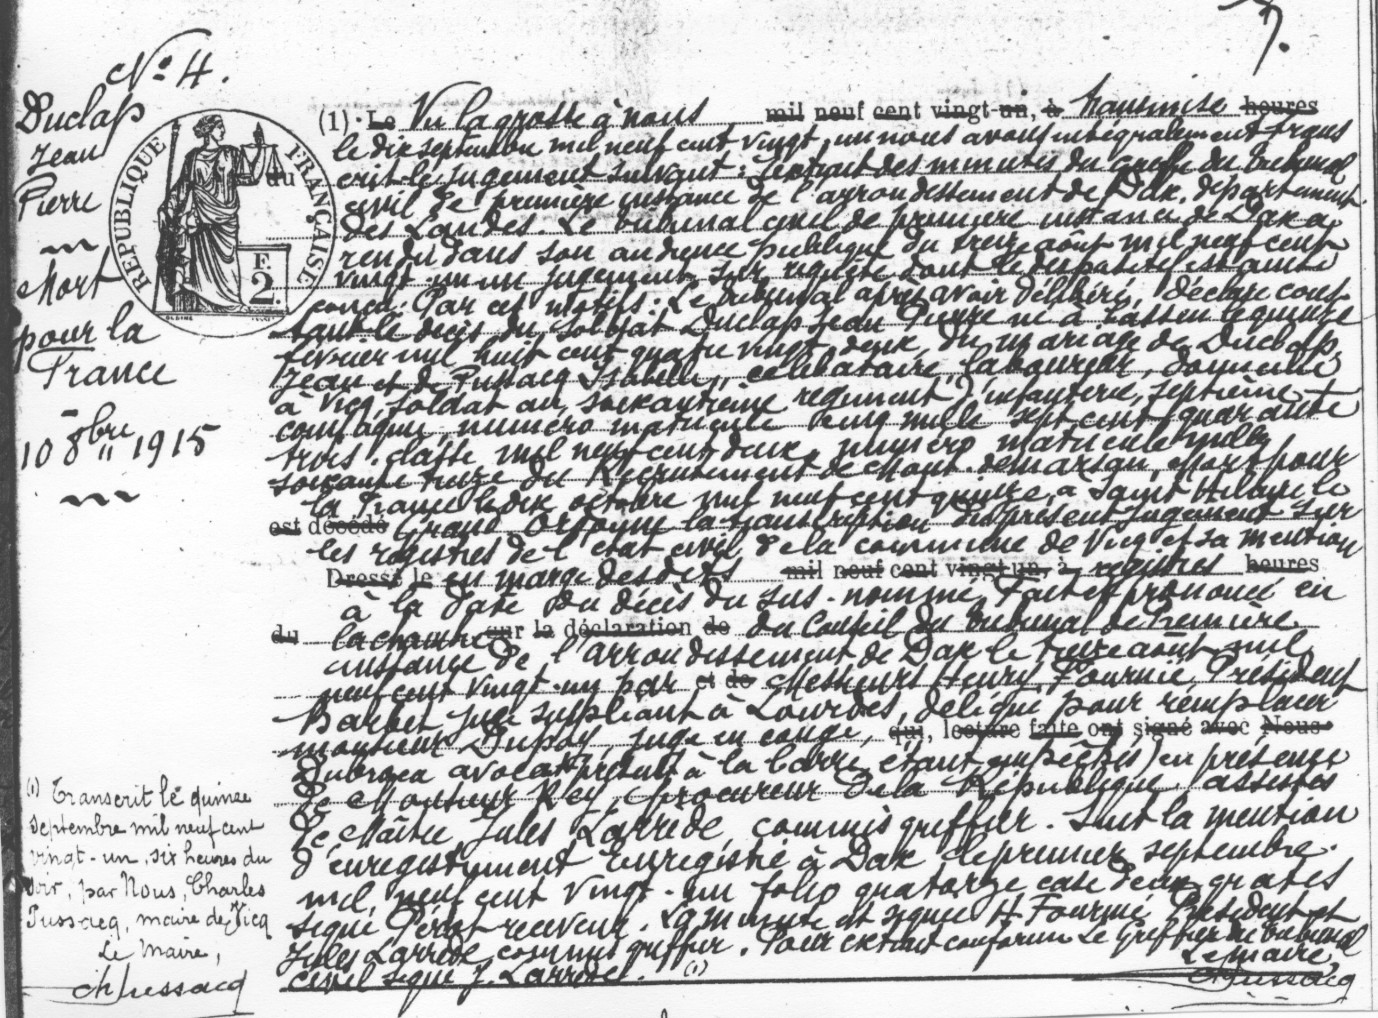 7.
No 4.
Duclap
Jean
Pierre
Mort
pour la
France
10 8bre 1915
RÉPUBLIQUE FRANÇAISE
F.
2.
(1) Le Vu la grosse à nous mil neuf cent vingt-un, à transmise heures
le dix septembre mil neuf cent vingt un nous avons intégralement trans
du crit le jugement suivant : Extrait des minutes du greffe du tribunal
civil de première instance de l'arrondissement de Dax, département
des Landes. Le tribunal civil de première instance de Dax a
rendu dans son audience publique du treize août mil neuf cent
vingt un un jugement sur requête dont le dispositif est ainsi
conçu. Par ces motifs : Le tribunal après avoir délibéré, déclare cons
tant le décès du soldat Duclap Jean Pierre né à le quinze
février mil huit cent quatre vingt deux du mariage de Duclap
Jean et de Pussacq Isabelle, célibataire laboureur, domicilié
à Vicq, soldat au régiment d'infanterie, septième
compagnie numéro matricule cinq mille sept cent quarante
trois, classe mil neuf cent deux, numéro matricule mille
soixante treize du Recrutement de Mont-de-Marsan, Mort pour
la France le dix octobre mil neuf cent quinze, à Saint Hilaire le
est décédé Grand Ordonne la transcription du présent jugement sur
les registres de l'état civil de la commune de Vicq et sa mention
Dressé le en marge desdits mil neuf cent vingt-un, à registres heures
à la date du décès du sus-nommé, Fait et prononcé en
du la chambre sur la déclaration de du Conseil du tribunal de Première
instance de l'arrondissement de Dax le treize août mil
neuf cent vingt-un par et de Messieurs Henry Fourmié Président
Barbet juge suppléant à Lourdes, délégué pour remplacer
monsieur Dupoy, juge en congé, qui, lecture faite ont signé avec Nous
avocat présent à la barre, étant empêchés) en présence
de Monsieur Rey, procureur de la République, assistés
de Maître Jules Larrède, commis greffier. Suit la mention
d'enregistrement Enregistré à Dax le premier septembre
mil neuf cent vingt-un folio quatorze case deux gratis
signé receveur. La minute est signée H Fourmié Président et
Jules Larrède, commis greffier. Pour extrait conforme Le Greffier du tribunal
civil signé J. Larrède. (1)
Le maire,
Ch Pussacq
(1) Transcrit le quinze
septembre mil neuf cent
vingt-un, six heures du
soir, par Nous, Charles
Pussacq, maire de Vicq
Le Maire,
Ch Pussacq